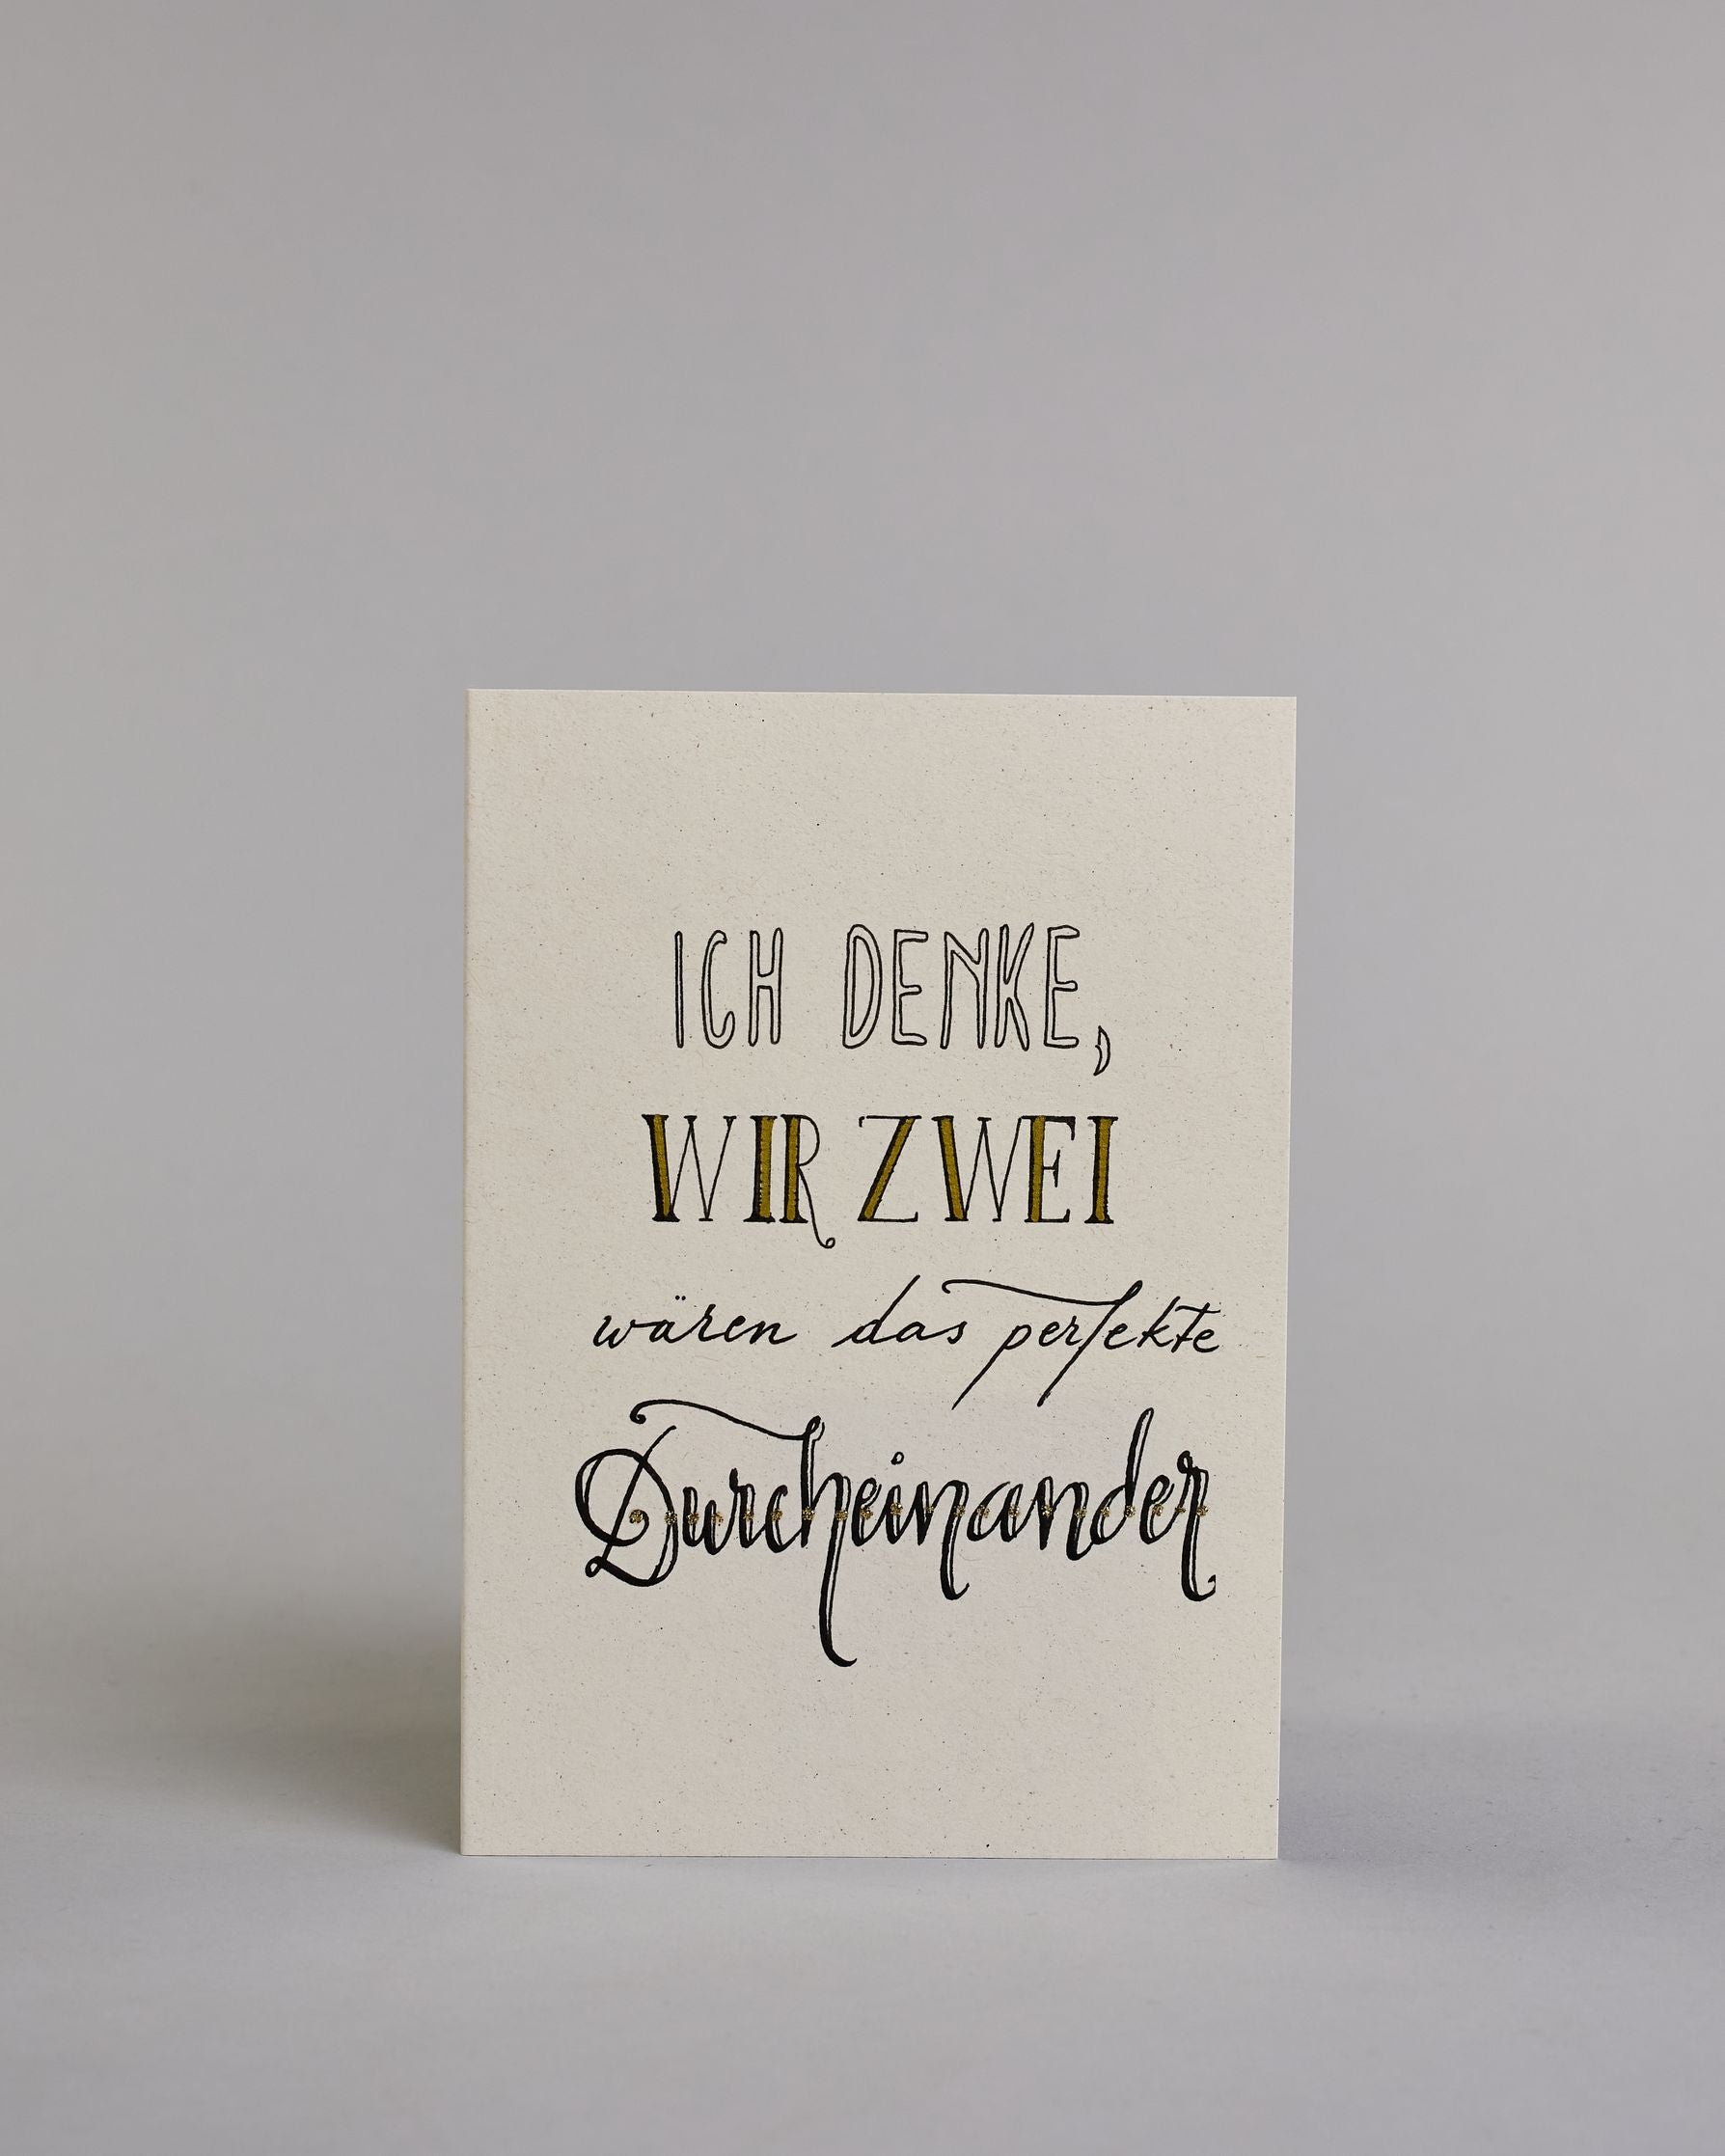 ICH DENKE,
WIR ZWEI
wären das perfekte
Durcheinander